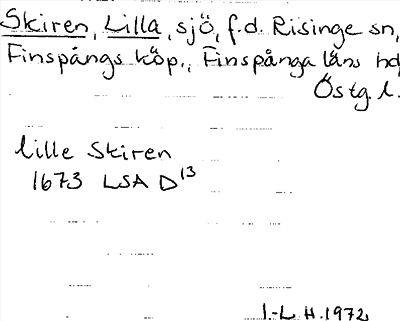 Skiren, Lilla, sjö, f.d. Risinge sn,
Finspångs köp., Finspånga läns hd
Östg. l.
Lille Skiren
1673 LSA D13
I.-L.H. 1972